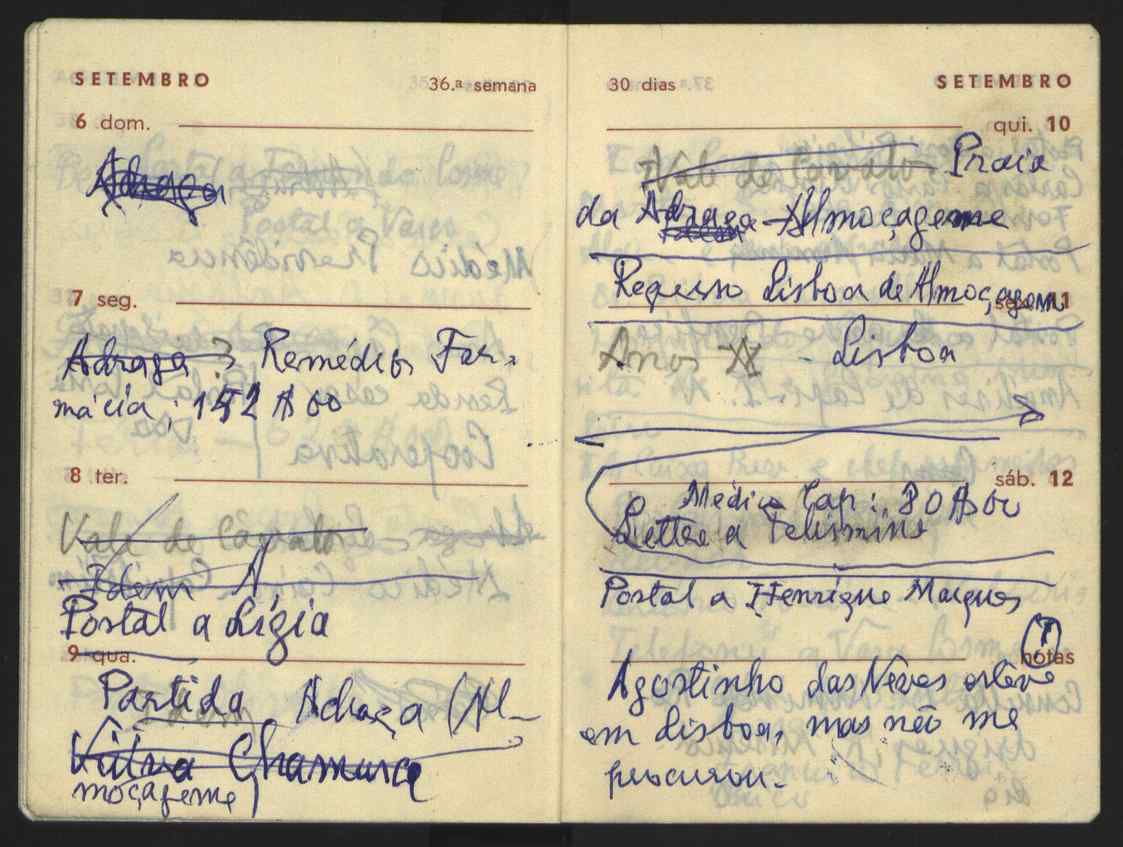 SETEMBRO 36.ª semana
6 dom.
Adraga
7 seg.
Adraga ? Remédios Far-
mácia: 152$00
8 ter.
Vale de Cavalos
Idem
Postal a Lígia
9 qua.
Partida Adraga (Al-
Chamusca
moçageme)
30 dias SETEMBRO
qui. 10
Vale de Cavalos Praia
da Adraga - Almoçageme
Regresso Lisboa de Almoçageme
sex. 11
Anos XX - Lisboa
sáb. 12
Médico Cap: 80$00
a Felismina
Postal a Henrique Marques
notas
Agostinho das Neves esteve
em Lisboa, mas não me
procurou.